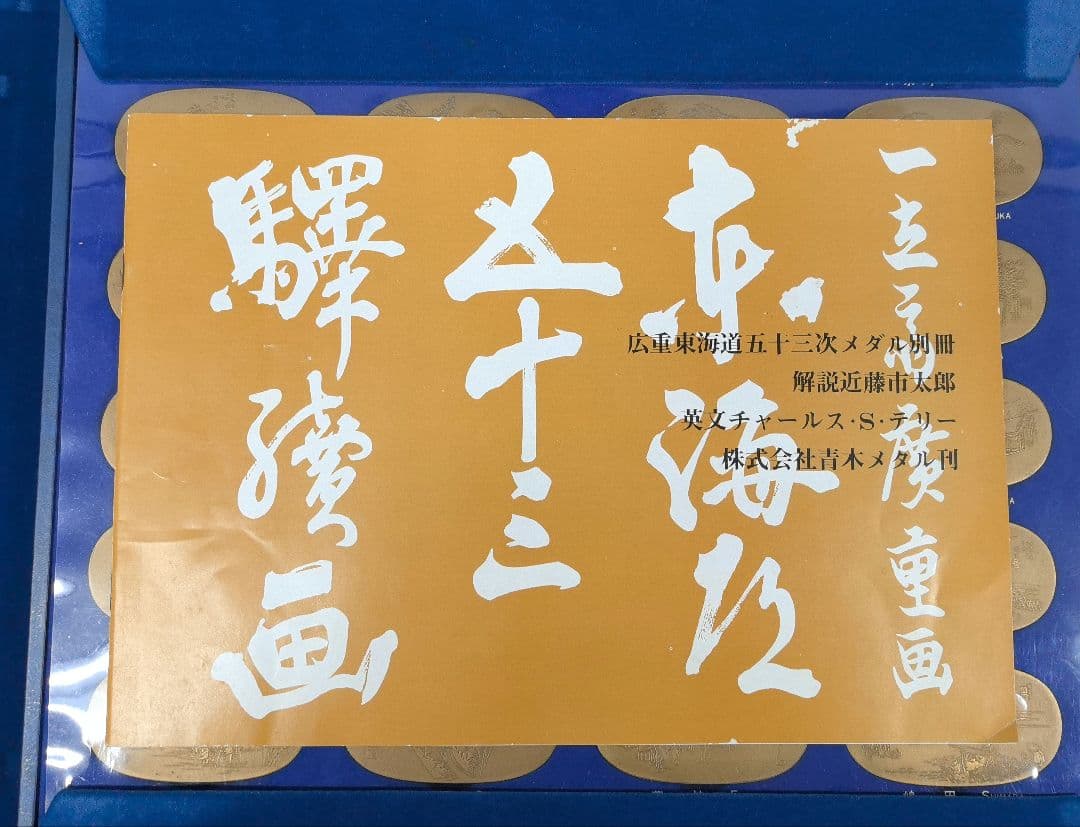 一立斎廣重画
東海道
五十三
驛續画
広重東海道五十三次メダル別冊
解説近藤市太郎
英文チャールス・S・テリー
株式会社青木メダル刊
UKA
A
島田 SHIMADA